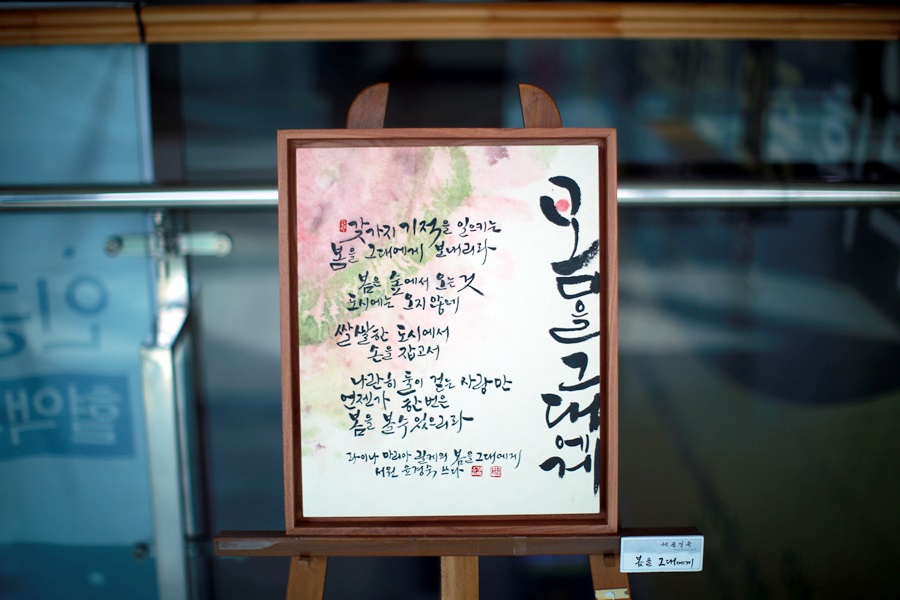 봄을 그대에게
갖가지 기적을 일으키는
봄을 그대에게 보내리라
봄은 숲에서 오는 것
도시에는 오지 않네
쌀쌀한 도시에서
손을 잡고서
나란히 둘이 걷는 사람만
언젠가 한번은
봄을 볼 수 있으리라
라이나 마리아 릴케의 봄을 그대에게
서원 윤경숙 쓰다
봄을 그대에게